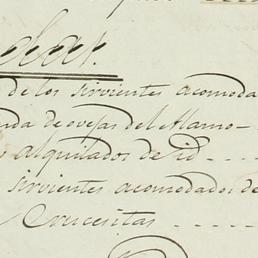 de los sirvientes acomoda
de ovejas del Alamo-
alquilados de id ----
sirvientes acomodados de
Crucesitas -----